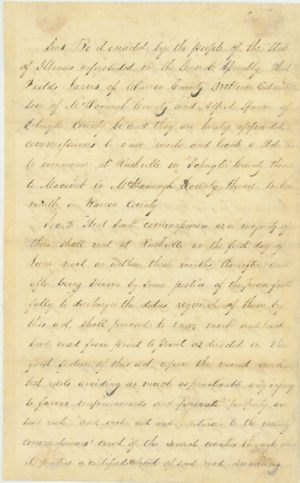 Sec 1 Be it enacted by the people of the State
of Illinois represented in the General Assembly That
Fields Jarvis of Warren County
of McDonough County and Alfred of
Schuyler County be and they are hereby appointed
commissioners to view, mark and locate a State
to commence at Rushville in Schuyler County thence
to Macomb in McDonough County, thence to
in Warren County
Sec. 2 That said commissioners or a majority of
them shall meet at Rushville on the first day of
June next or within three months thereafter and
after being sworn by some justice of the peace faith-
fully to discharge the duties required of them by
this act, shall proceed to view, mark and locate
said road from point to point as directed in the
first section of this act, upon the most
best route avoiding as much as practicable any injury
to farms improvements and private property on
said road, and make out and return to the county
commissioners' court of the several counties through which
it passes a certified of said road including